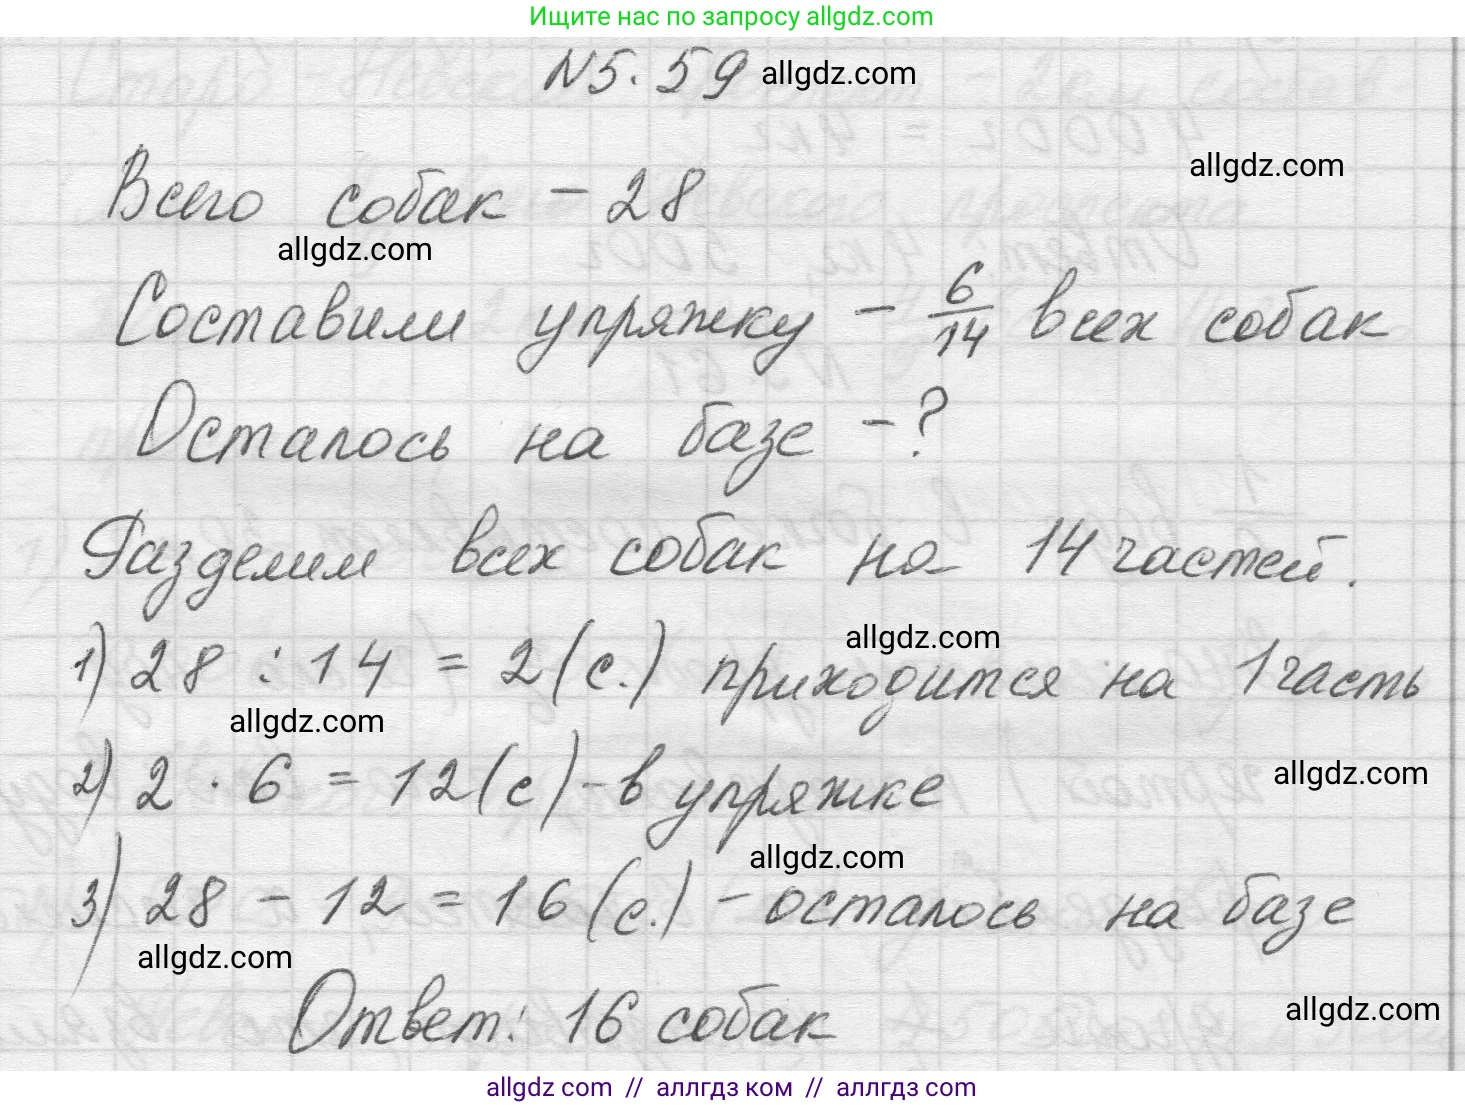 Ищите нас по запросу allgdz.com
N5.59 allgdz.com
Всего собак – 28
allgdz.com
allgdz.com
Составили упряжку – 6/14 всех собак
Осталось на базе – ?
Разделим всех собак на 14 частей.
allgdz.com
1) 28 : 14 = 2 (с.) приходится на 1 часть
allgdz.com
allgdz.com
2) 2 · 6 = 12 (с) – в упряжке
allgdz.com
3) 28 – 12 = 16 (с.) – осталось на базе
allgdz.com
allgdz.com
Ответ: 16 собак
allgdz com // аллгдз ком // аллгдз com